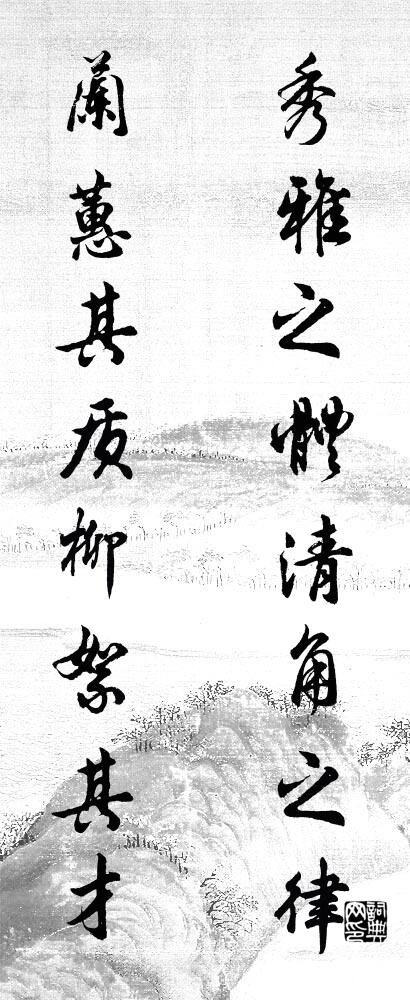 秀雅之體清角之律
蘭蕙其质柳絮其才
詞典网印